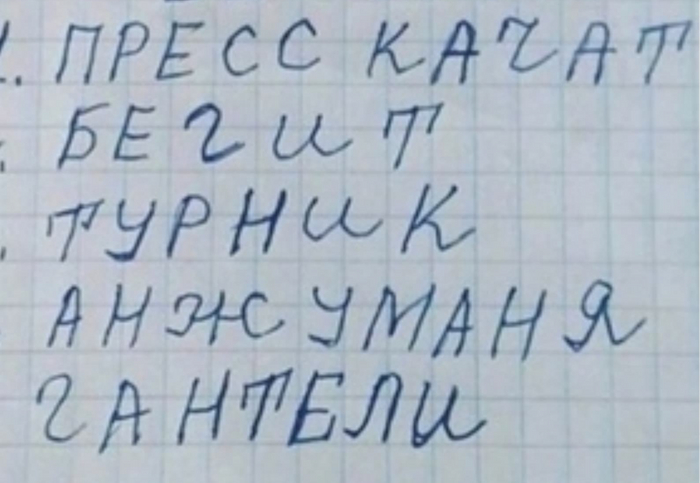 1. ПРЕСС КАЧАТ
БЕГИТ
ТУРНИК
АНЖУМАНЯ
ГАНТЕЛИ